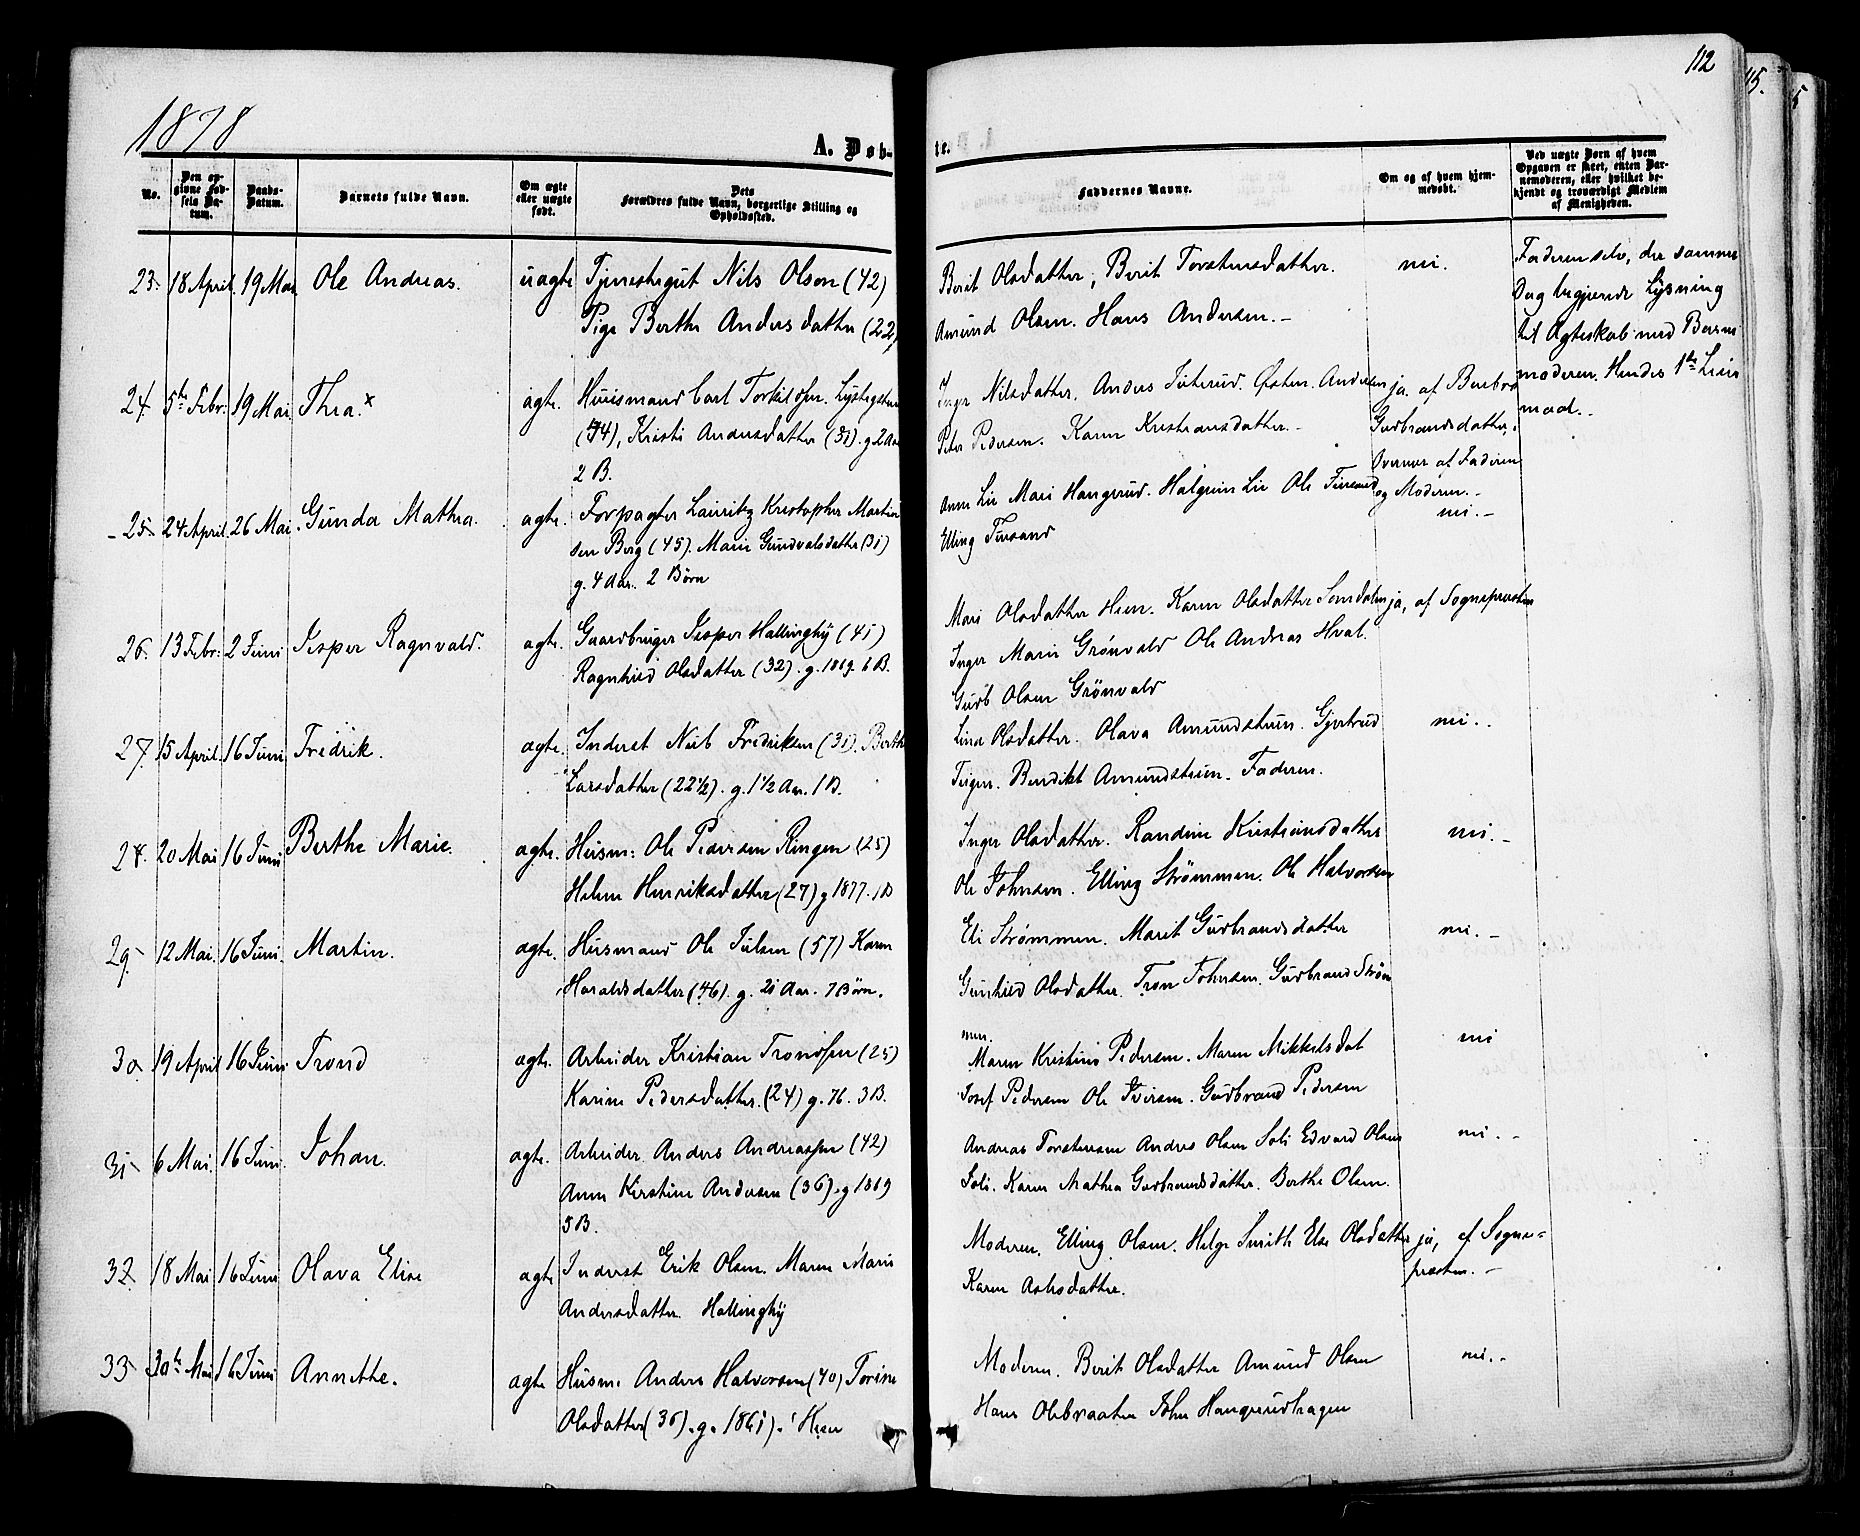 112
1878
A. Døb-
te.
No.
Den op-
givne Fød-
sels Da-
tum.
Daabs-
Datum.
Barnets fulde Navn.
Om ægte
eller uægte
født.
Dets
Forældres fulde Navn, borgerlige Stilling og
Opholdssted.
Faddernes Navne.
Om og af hvem hjem-
medøbt.
Ved uægte Børn af hvem
Opgaven er skeet, enten Bar-
nemoderen, eller hvilket be-
kjendt og troværdigt Medlem
af Menigheden.
23. 18 April. 19 Mai Ole Andreas. uægte Tjenestegut Nils Olsen (42)
Pige Berthe Andersdatter (22)
Berit Olsdatter, Berit Torstensdatter. nei.
Amund Olsen. Hans Andersen.-
Faderen selv, der samme
Dag begjerede Lysning
til Ægteskab med Barne
moderen. Hendes 1ste Leier
maal.-
24. 5te Febr. 19 Mai. Thea.x ægte. Huusmand Carl Torkildsen.
(44), Kristi Andersdatter (31). g. 2 Aar
2 B.
Inger Nilsdatter. Anders Juterud. Østen. Andersen ja. af Barbro
Peter Pedersen. Karen Kristiansdatter.- Gudbrandsdatter,
Overvær af Faderen
og Moderen.-
25. 24 April. 26 Mai. Gunda Mathea. ægte. Forpagter Lauritz Kristopher Martin
sen Berg (45). Marie Gundvalsdatter (31)
g. 4 Aar. 2 Børn
Anne Lie Mari Haugerud. Halgrim Lie Ole Finsand nei.-
Elling Finsand
26. 13 Febr. 2 Juni Jesper Ragnvald. ægte. Gaardbruger Jesper Hallingby (41)
Ragnhild Olsdatter (32). g. 1869. 6 B.
Mari Olsdatter Heen. Karen Olsdatter Somdalen ja, af Sognepræsten
Inger Marie Grønvold Ole Andreas Hval.
Gudb Olsen Grønvold
27. 15 April. 16 Juni Fredrik. ægte. Inderst Nils Fredriksen (31). Berthe
Larsdatter (22½). g. 1½ Aar. 1 B.
Lina Olsdatter. Olava Amundstuen. Gjertrud nei..
Teigen. Bendikt Amundstuen. Faderen.
28. 20 Mai 16 Juni Berthe Marie. ægte. Husm: Ole Pedersen Ringen (25)
Helene Henriksdatter (27) g 1877. 1 B
Inger Olsdatter. Randine Kristiansdatter nei.-
Ole Johnsen. Elling Strømmen. Ole Halvorsen
29. 12 Mai. 16 Juni. Martin. ægte. Husmand Ole Julsen (57) Karen
Haraldsdatter (46). g. 21 Aar. 7 Børn.
Eli Strømmen. Marit Gudbrandsdatter nei.-
Gunhild Olsdatter. Tron Johnsen. Gudbrand Strøm
men.
30. 19 April 16 Juni. Trond ægte. Arbeider Kristian Trondsen (25)
Karine Pedersdatter. (24) g. 76. 3 B.
Maren Kristine Pedersen. Maren Mikkelsdat nei
Josef Pedersen Ole Iversen. Gudbrand Pedersen
31. 6 Mai. 16 Juni. Johan. ægte. Arbeider. Anders Andreassen (42)
Anne Kirstine Andersen (36). g 1869
5 B.
Andreas Torstensen Andres Olsen Soli Edvard Olsen nei.-
Soli. Karen Mathea Gudbrandsdatter. Berthe Olsen.
32. 18 Mai 16 Juni Olava Elise ægte Inderst Erik Olsen. Maren Marie
Andersdatter. Hallingby
Moderen. Elling Olsen. Helge Smith Else Olsdatter ja, af Sogne-
Karen Aslesdatter. præsten.-
33. 30te Mai 16 Juni Annethe. ægte Husm. Anders Halvorsen (40) Torine
Olsdatter (36). g. 1861). Heen
Moderen. Berit Olsdatter Amund Olsen nei..
Hans Olebraaten John Haugerudhagen